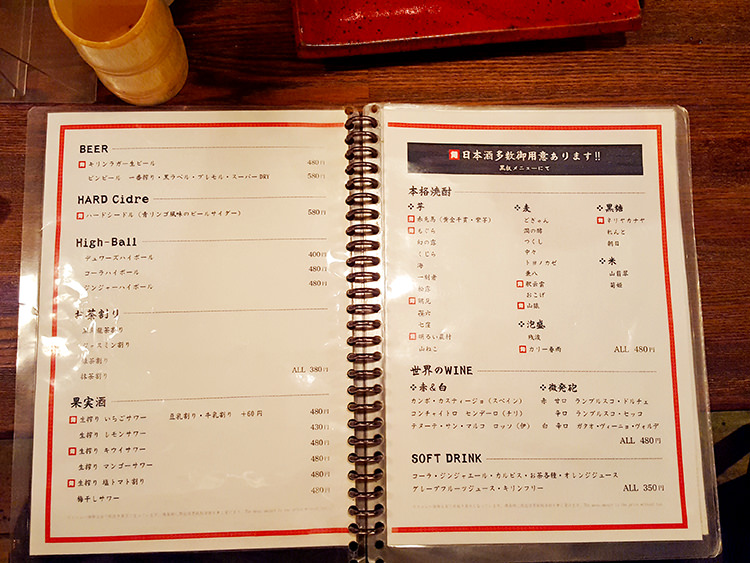 BEER
キリンラガー生ビール 480円
ビンビール 一番搾り・黒ラベル・プレモル・スーパーDRY 580円
HARD Cidre
ハードシードル（青リンゴ風味のビールサイダー） 580円
High-Ball
デュワーズハイボール 400円
コーラハイボール 480円
ジンジャーハイボール 480円
お茶割り
ジャスミン割り
抹茶割り ALL 380円
果実酒
生搾り いちごサワー 豆乳割り・牛乳割り +60円 480円
生搾り レモンサワー 430円
生搾り キウイサワー 480円
生搾り マンゴーサワー 480円
生搾り 塩トマト割り 480円
梅干しサワー 480円
日本酒多数御用意あります!!
黒板メニューにて
本格焼酎
芋
赤兎馬
もぐら
幻の露
くじら
海
一刻者
松露
鶴見
萬膳
山ねこ
麦
どぎゃん
閻の闇
つくし
中々
トヨノカゼ
兼八
おこげ
山猿
泡盛
残波
カリー春雨
黒糖
れんと
朝日
米
山翡翠
ALL 480円
世界のWINE
赤&白
カンポ・カスティージョ（スペイン）
コンチャイトロ センデーロ（チリ）
テヌーテ・サン・マルコ ロッソ（伊）
微発砲
赤 甘口 ランブルスコ・ドルチェ
辛口 ランブルスコ・セッコ
白 辛口 ガタオ・ヴィーニョ・ヴェルデ
ALL 480円
SOFT DRINK
コーラ・ジンジャエール・カルピス・お茶各種・オレンジジュース
グレープフルーツジュース・キリンフリー ALL 350円